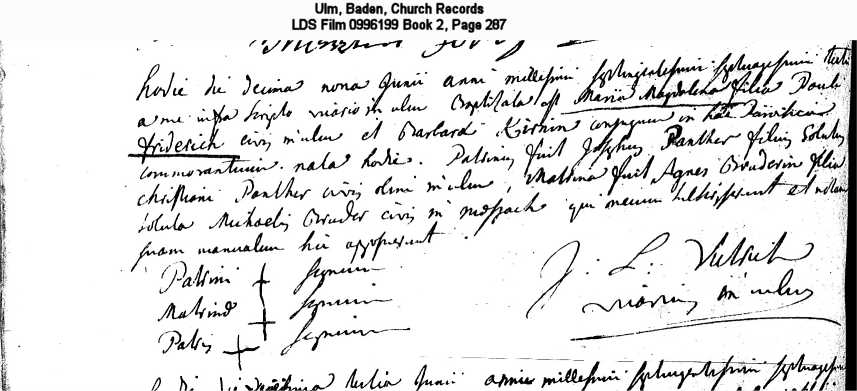 Ulm, Baden, Church Records
LDS Film 0996199 Book 2, Page 287
hodie die decima nona Junii anni millesimi septingentesimi septuagesimi tertii
a me infra scripto vicario in ulm Baptizata est Maria Magdalena filia Pauli
friderich civis in ulm et Barbara Kirnin conjugum in hac Parochia
commorantium nata hodie. Patrinus fuit Josephus Panther filius solutus
christiani Panther civis olim in ulm, Matrina fuit Agnes Bruderin filia
soluta Michaelis Bruder civis in mospach qui mecum subscripserunt et
quam manualem hic apposuerunt.
Patrini + signum
Matrinae + signum
Patris + signum
J: L:
vicarius in ulm
die tertia Junii anni millesimi septingentesimi